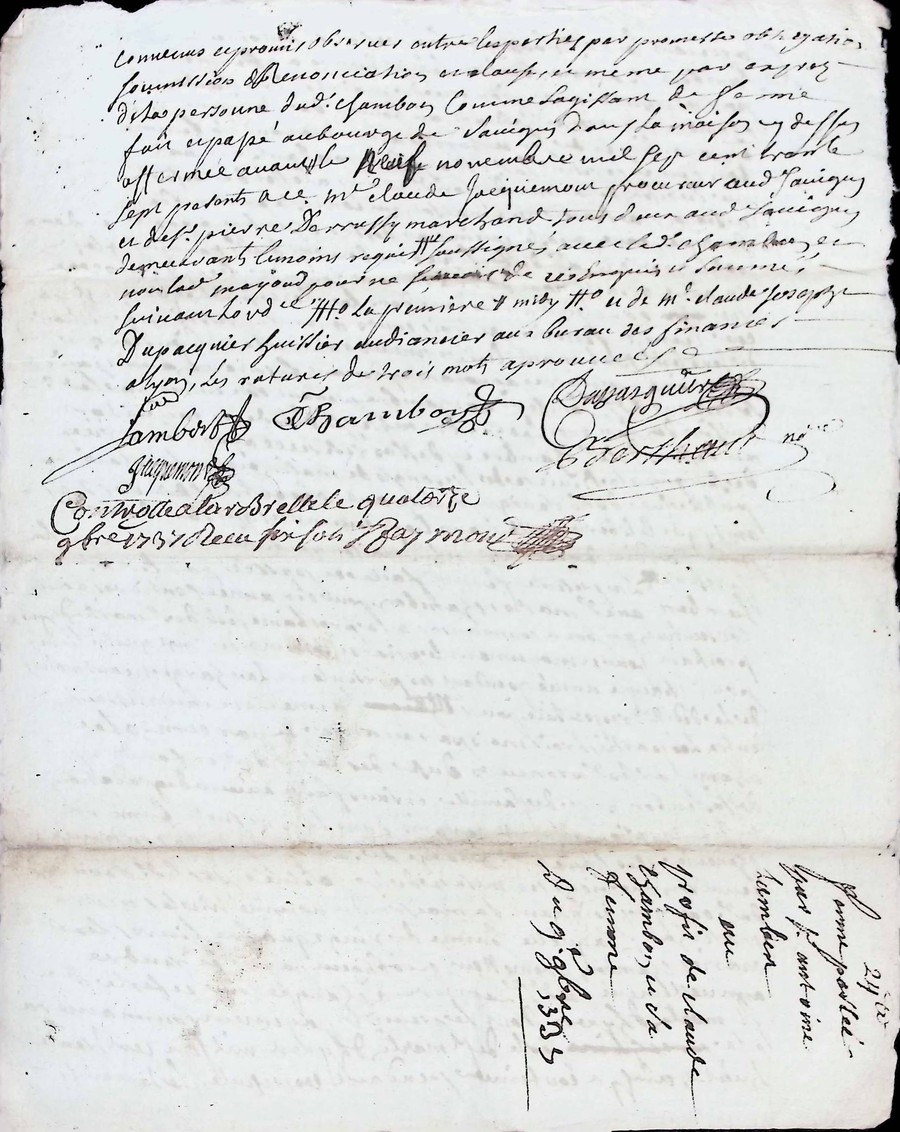 Convenus et promis observer entre les parties par promesse obligation
soumission & Renonciation et clause, et même par exprez
de la personne dud. Chambon Comme sagissant de ferme
fait et passé au bourg de Savigny dans la maison cy dessus
affermée avant le Neuf novembre mil sept cent trente
sept presents a ce Me claude Jacquemont procureur aud Savigny
et de Sr pierre marchand tous deux aud Savigny
demeurants temoins requis soussignes avec led. Chambon et
non lad. mayoud pour ne de ce enquis et sommés
suivant Lord la premiere midy et de Me claude Joseph
Dupacquier huissier audiancier au bureau des finances
a lyon, les ratures de trois mots aprouvees
Lambert Chambon Dupacquier
Jacquemont Berthault nore
Controllé a Larbrelle le quatorze
9bre 1737 Receu six sols Raymond
24
ferme passée
par Sr antoine
Lambert
au
profit de claude
Chambon et sa
femme
Du 9e 9bre
1737